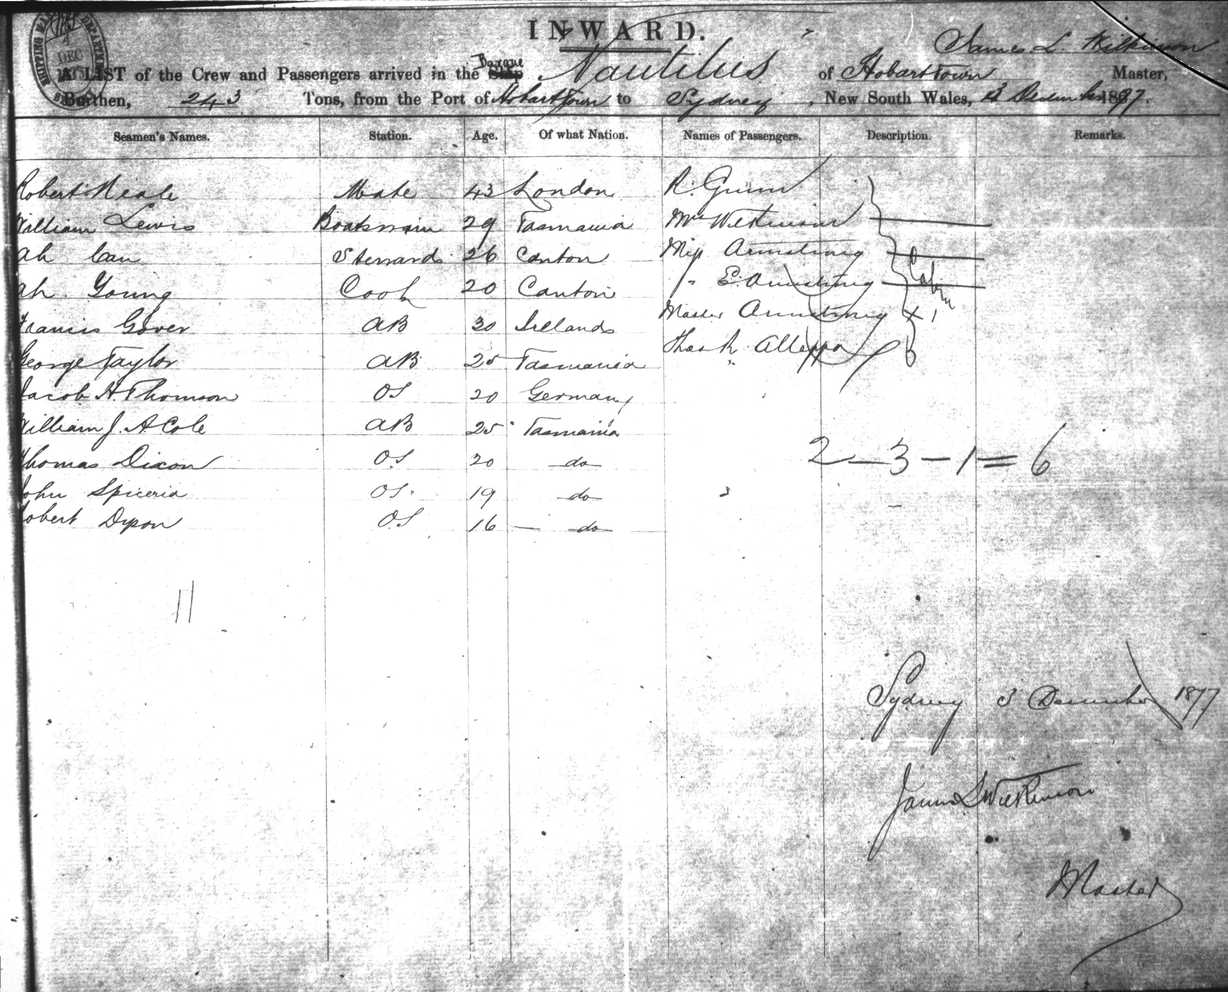 INWARD.
James L. Wilkinson
A LIST of the Crew and Passengers arrived in the Barque Ship Nautilus of Hobart Town Master,
Burthen, 243 Tons, from the Port of Hobart Town to Sydney, New South Wales, 3 December 1877.
Seamen's Names. Station. Age. Of what Nation. Names of Passengers. Description. Remarks.
Robert Neale Mate 43 London R. Gunn
William Lewis Boatswain 29 Tasmania Mrs Wilkinson
Ah Can Steward 26 Canton Miss Armstrong
Ah Young Cook 20 Canton " E. Armstrong Cabin
Francis Gover AB 30 Ireland Master Armstrong x 1
George Taylor AB 25 Tasmania 6
Jacob H. Thomson OS 20 Germany
William J. A Cole AB 25 Tasmania
Thomas Dixon OS 20 do 2 - 3 - 1 = 6
John OS. 19 do
Robert OS 16 do
11
Sydney 3 December 1877
James L Wilkinson
Master